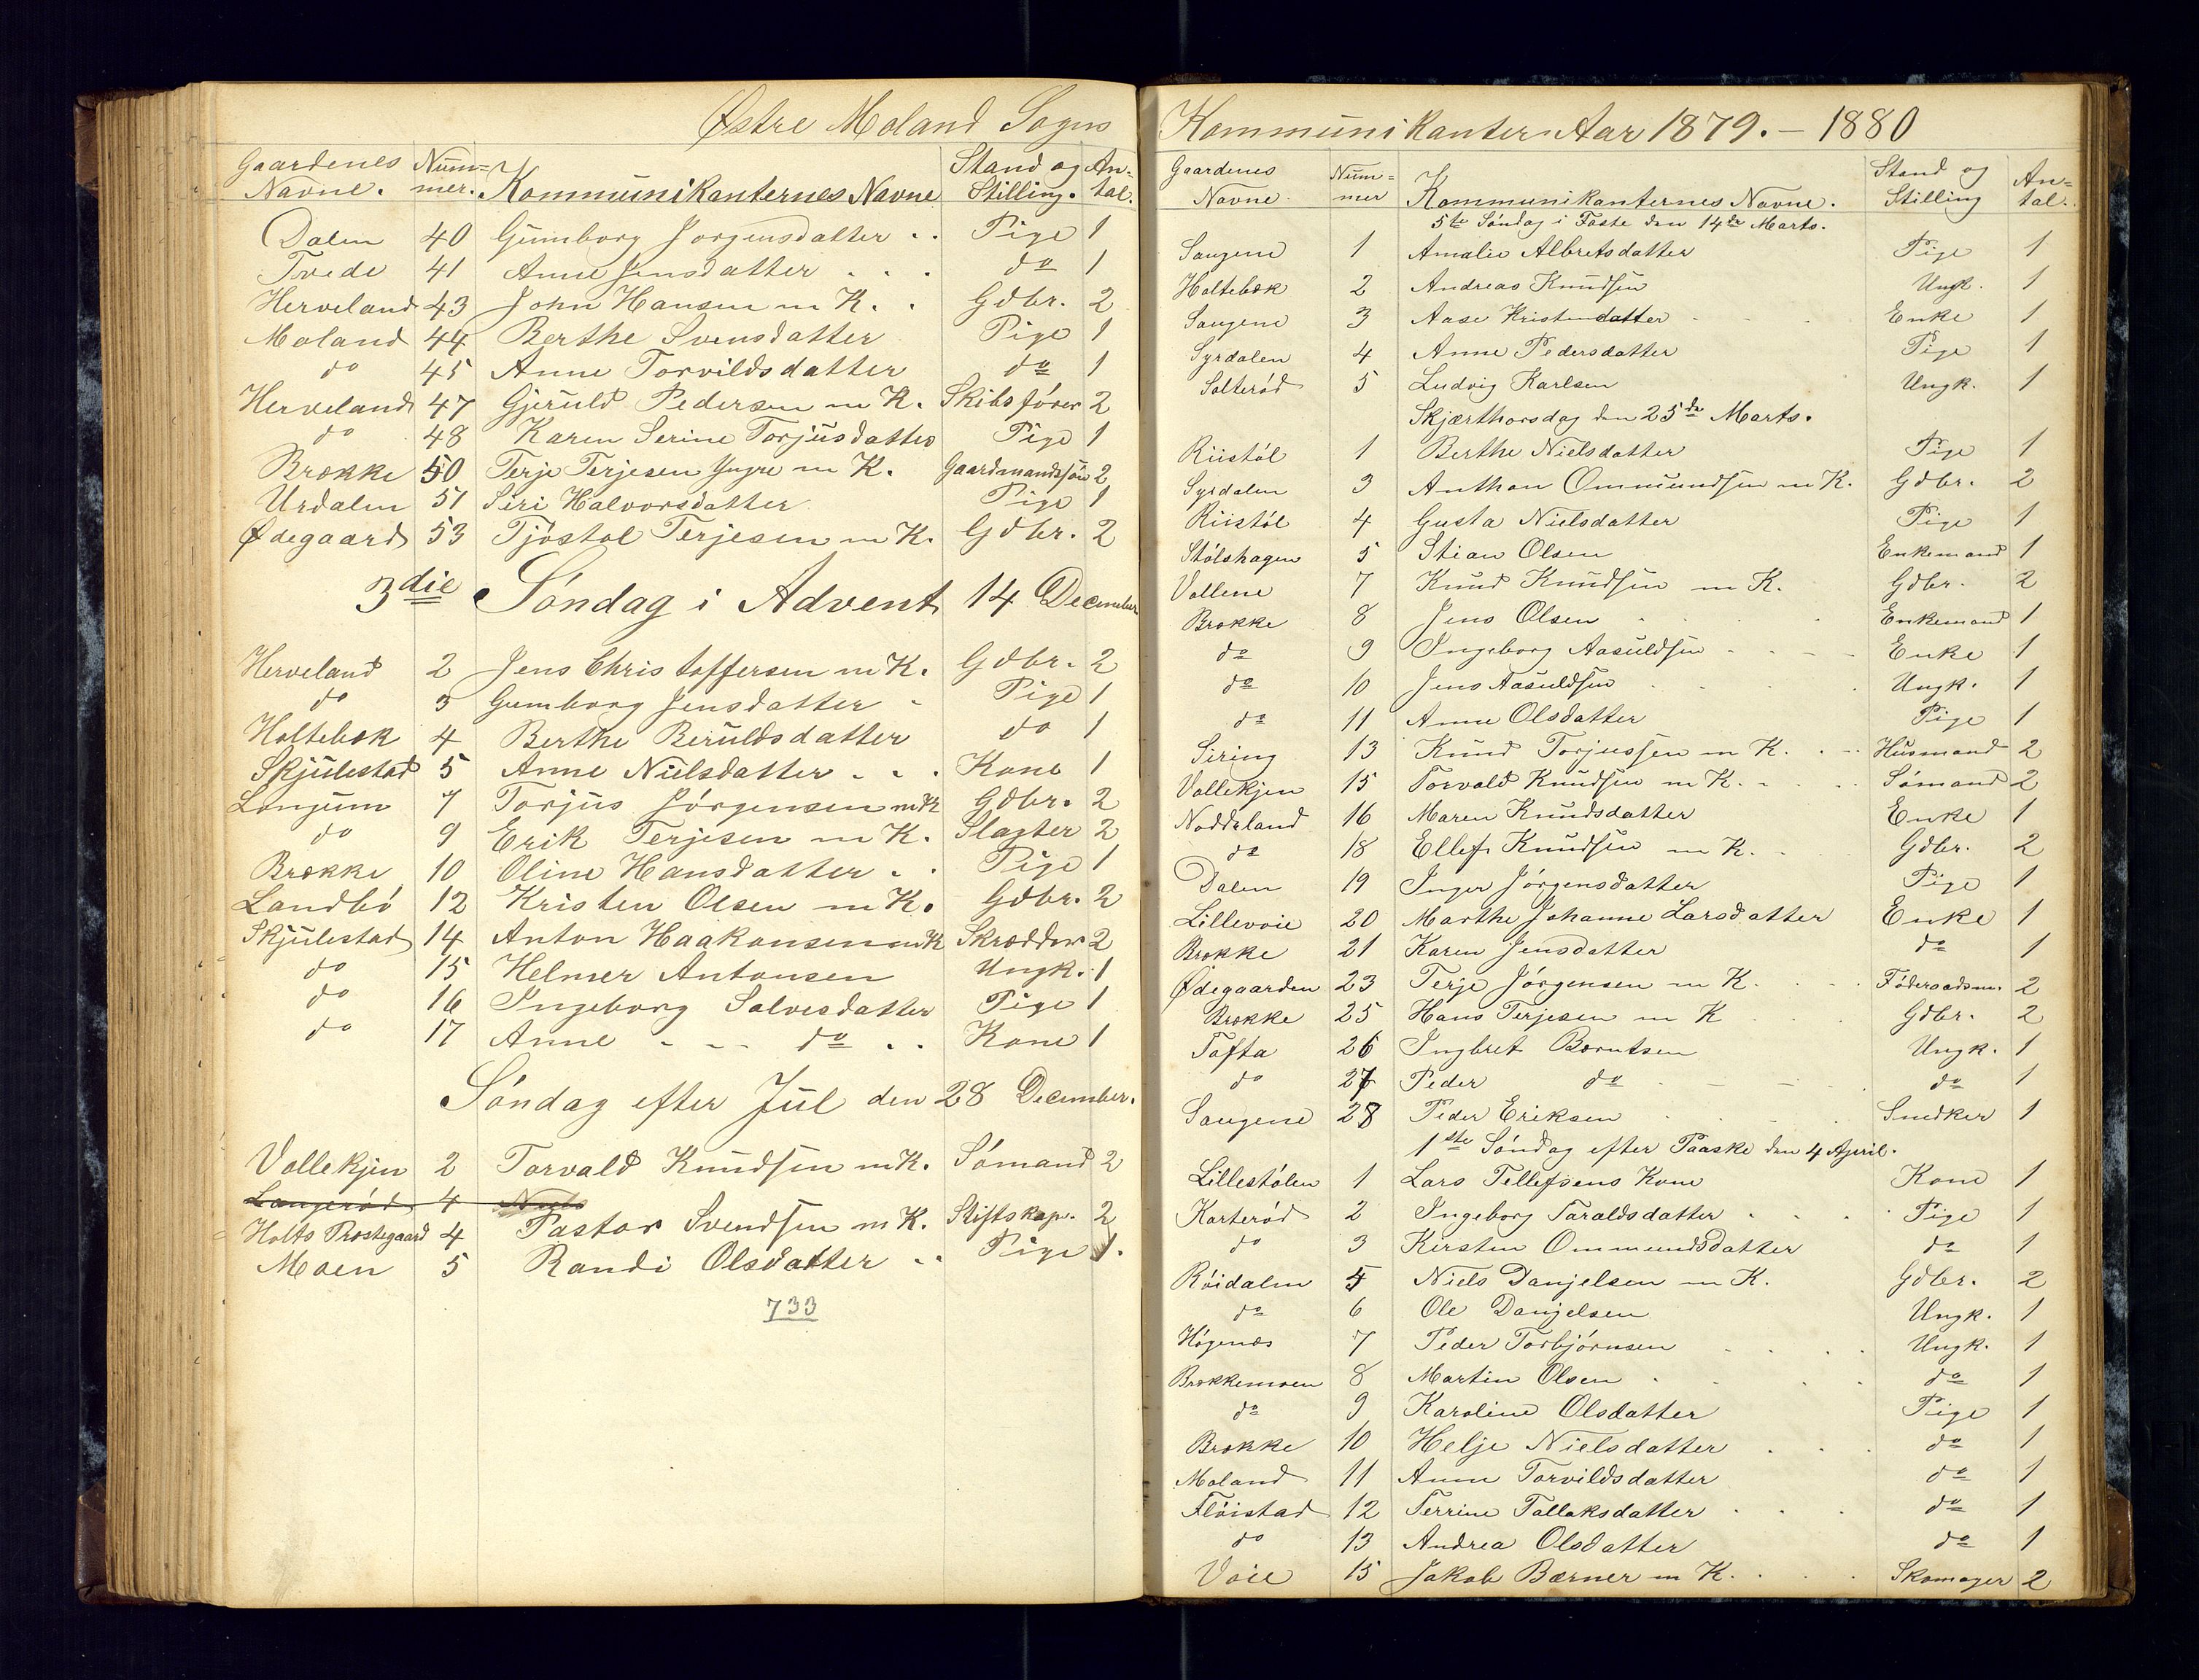 Østre Moland Sogns
Gaardenes Navne. Num=mer. Kommunikanternes Navne Stand og Stilling. An=tal.
Dalen 40 Gunborg Jørgensdatter Pige 1
Tvede 41 Anne Jensdatter do 1
Herveland 43 John Hansen m K. Gdbr. 2
Moland 44 Berthe Svensdatter Pige 1
do 45 Anne Torvildsdatter do 1
Herveland 47 Gjeruld Pedersen m K. Skibsfører 2
do 48 Karen Serine Torjusdatter Pige 1
Brække 50 Terje Terjesen Yngre m K. Gaardmandssøn 2
Urdalen 51 Siri Halvorsdatter Pige 1
Ødegaard 53 Tjøstol Terjesen m K. Gdbr. 2
3die Søndag i Advent 14 December
Herveland 2 Jens Christoffersen m K. Gdbr. 2
do 3 Gunborg Jensdatter Pige 1
Holtebæk 4 Berthe Beruldsdatter do 1
Skjulestad 5 Anne Nielsdatter Kone 1
Longum 7 Torjus Jørgensen m K Gdbr. 2
do 9 Erik Terjesen m K. Slagter 2
Brække 10 Oline Hansdatter Pige 1
Landbö 12 Kristen Olsen m K. Gdbr. 2
Skjulestad 14 Anton Haakonsen m K Skrædder 2
do 15 Helmer Antonsen Ungk. 1
do 16 Ingeborg Salvesdatter Pige 1
do 17 Anne do Kone 1
Søndag efter Jul den 28 December.
Vollekjen 2 Torvald Knudsen m K. Sømand 2
Langerød 4 Niels
Holts Præstegaard 4 Pastor Svendsen m K. Stiftskap. 2
Moen 5 Randi Olsdatter Pige 1.
733
Kommunikanter Aar 1879. – 1880
Gaardenes Navne Num=mer Kommunikanternes Navne. Stand og Stilling An=tal.
5te Søndag i Faste den 14de Marts.
Saugene 1 Amalie Albretsdatter Pige 1
Holtebæk 2 Andreas Knudsen Ungk. 1
Saugene 3 Aase Kristensdatter Enke 1
Syrdalen 4 Anne Pedersdatter Pige 1
Salterød 5 Ludvig Karlsen Ungk. 1
Skjærthorsdag den 25de Marts.
Riistöl 1 Berthe Nielsdatter Pige 1
Syrdalen 3 Anthon Ommundsen m K. Gdbr. 2
Riistöl 4 Gusta Nielsdatter Pige 1
Stölshagen 5 Stian Olsen Enkemand 1
Vollene 7 Knud Knudsen m K. Gdbr. 2
Brække 8 Jens Olsen Enkemand 1
do 9 Ingeborg Aasuldsen Enke 1
do 10 Jens Aasuldsen Ungk. 1
do 11 Anne Olsdatter Pige 1
Siring 13 Knud Torjussen m K. Husmand 2
Vollekjen 15 Torvald Knudsen m K. Sømand 2
Noddeland 16 Maren Knudsdatter Enke 1
do 18 Ellef Knudsen m K. Gdbr. 2
Dalen 19 Inger Jørgensdatter Pige 1
Lillevoie 20 Marthe Johanne Larsdatter Enke 1
Brække 21 Karen Jensdatter do 1
Ødegaarden 23 Terje Jørgensen m K. Föderaadsm. 2
Brække 25 Hans Terjesen m K Gdbr. 2
Tofta 26 Ingbret Berntsen Ungk. 1
do 27 Peder do do 1
Saugene 28 Peder Eriksen Snedker 1
1ste Søndag efter Paaske den 4 April.
Lillestölen 1 Lars Tellefsens Kone Kone 1
Karterød 2 Ingeborg Taraldsdatter Pige 1
do 3 Kirsten Ommundsdatter do 1
Röidalen 5 Niels Danjelsen m K. Gdbr. 2
do 6 Ole Danjelsen Ungk. 1
Högenæs 7 Peder Torbjörnsen Ungk. 1
Brækkemoen 8 Martin Olsen do 1
do 9 Karoline Olsdatter Pige 1
Brække 10 Helje Nielsdatter do 1
Moland 11 Anne Torvildsdatter do 1
Flöistad 12 Terrine Tallaksdatter do 1
do 13 Andrea Olsdatter do 1
Voie 15 Jakob Bærner m K. Skomager 2